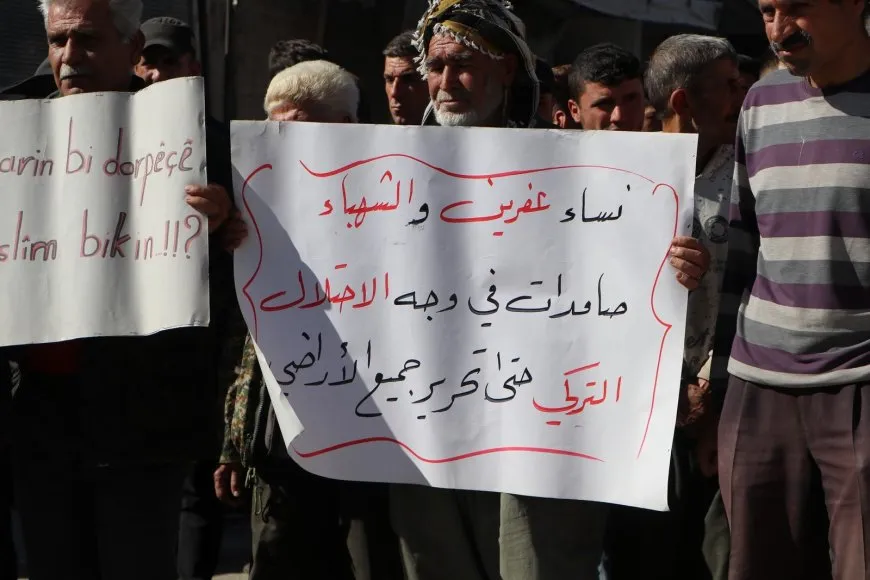 arin bi darpêçê
slîm bikin!!!?
نساء عفرين والشهباء
صامدات في وجه الاحتلال
التركي حتى تحرير جميع الأراضي